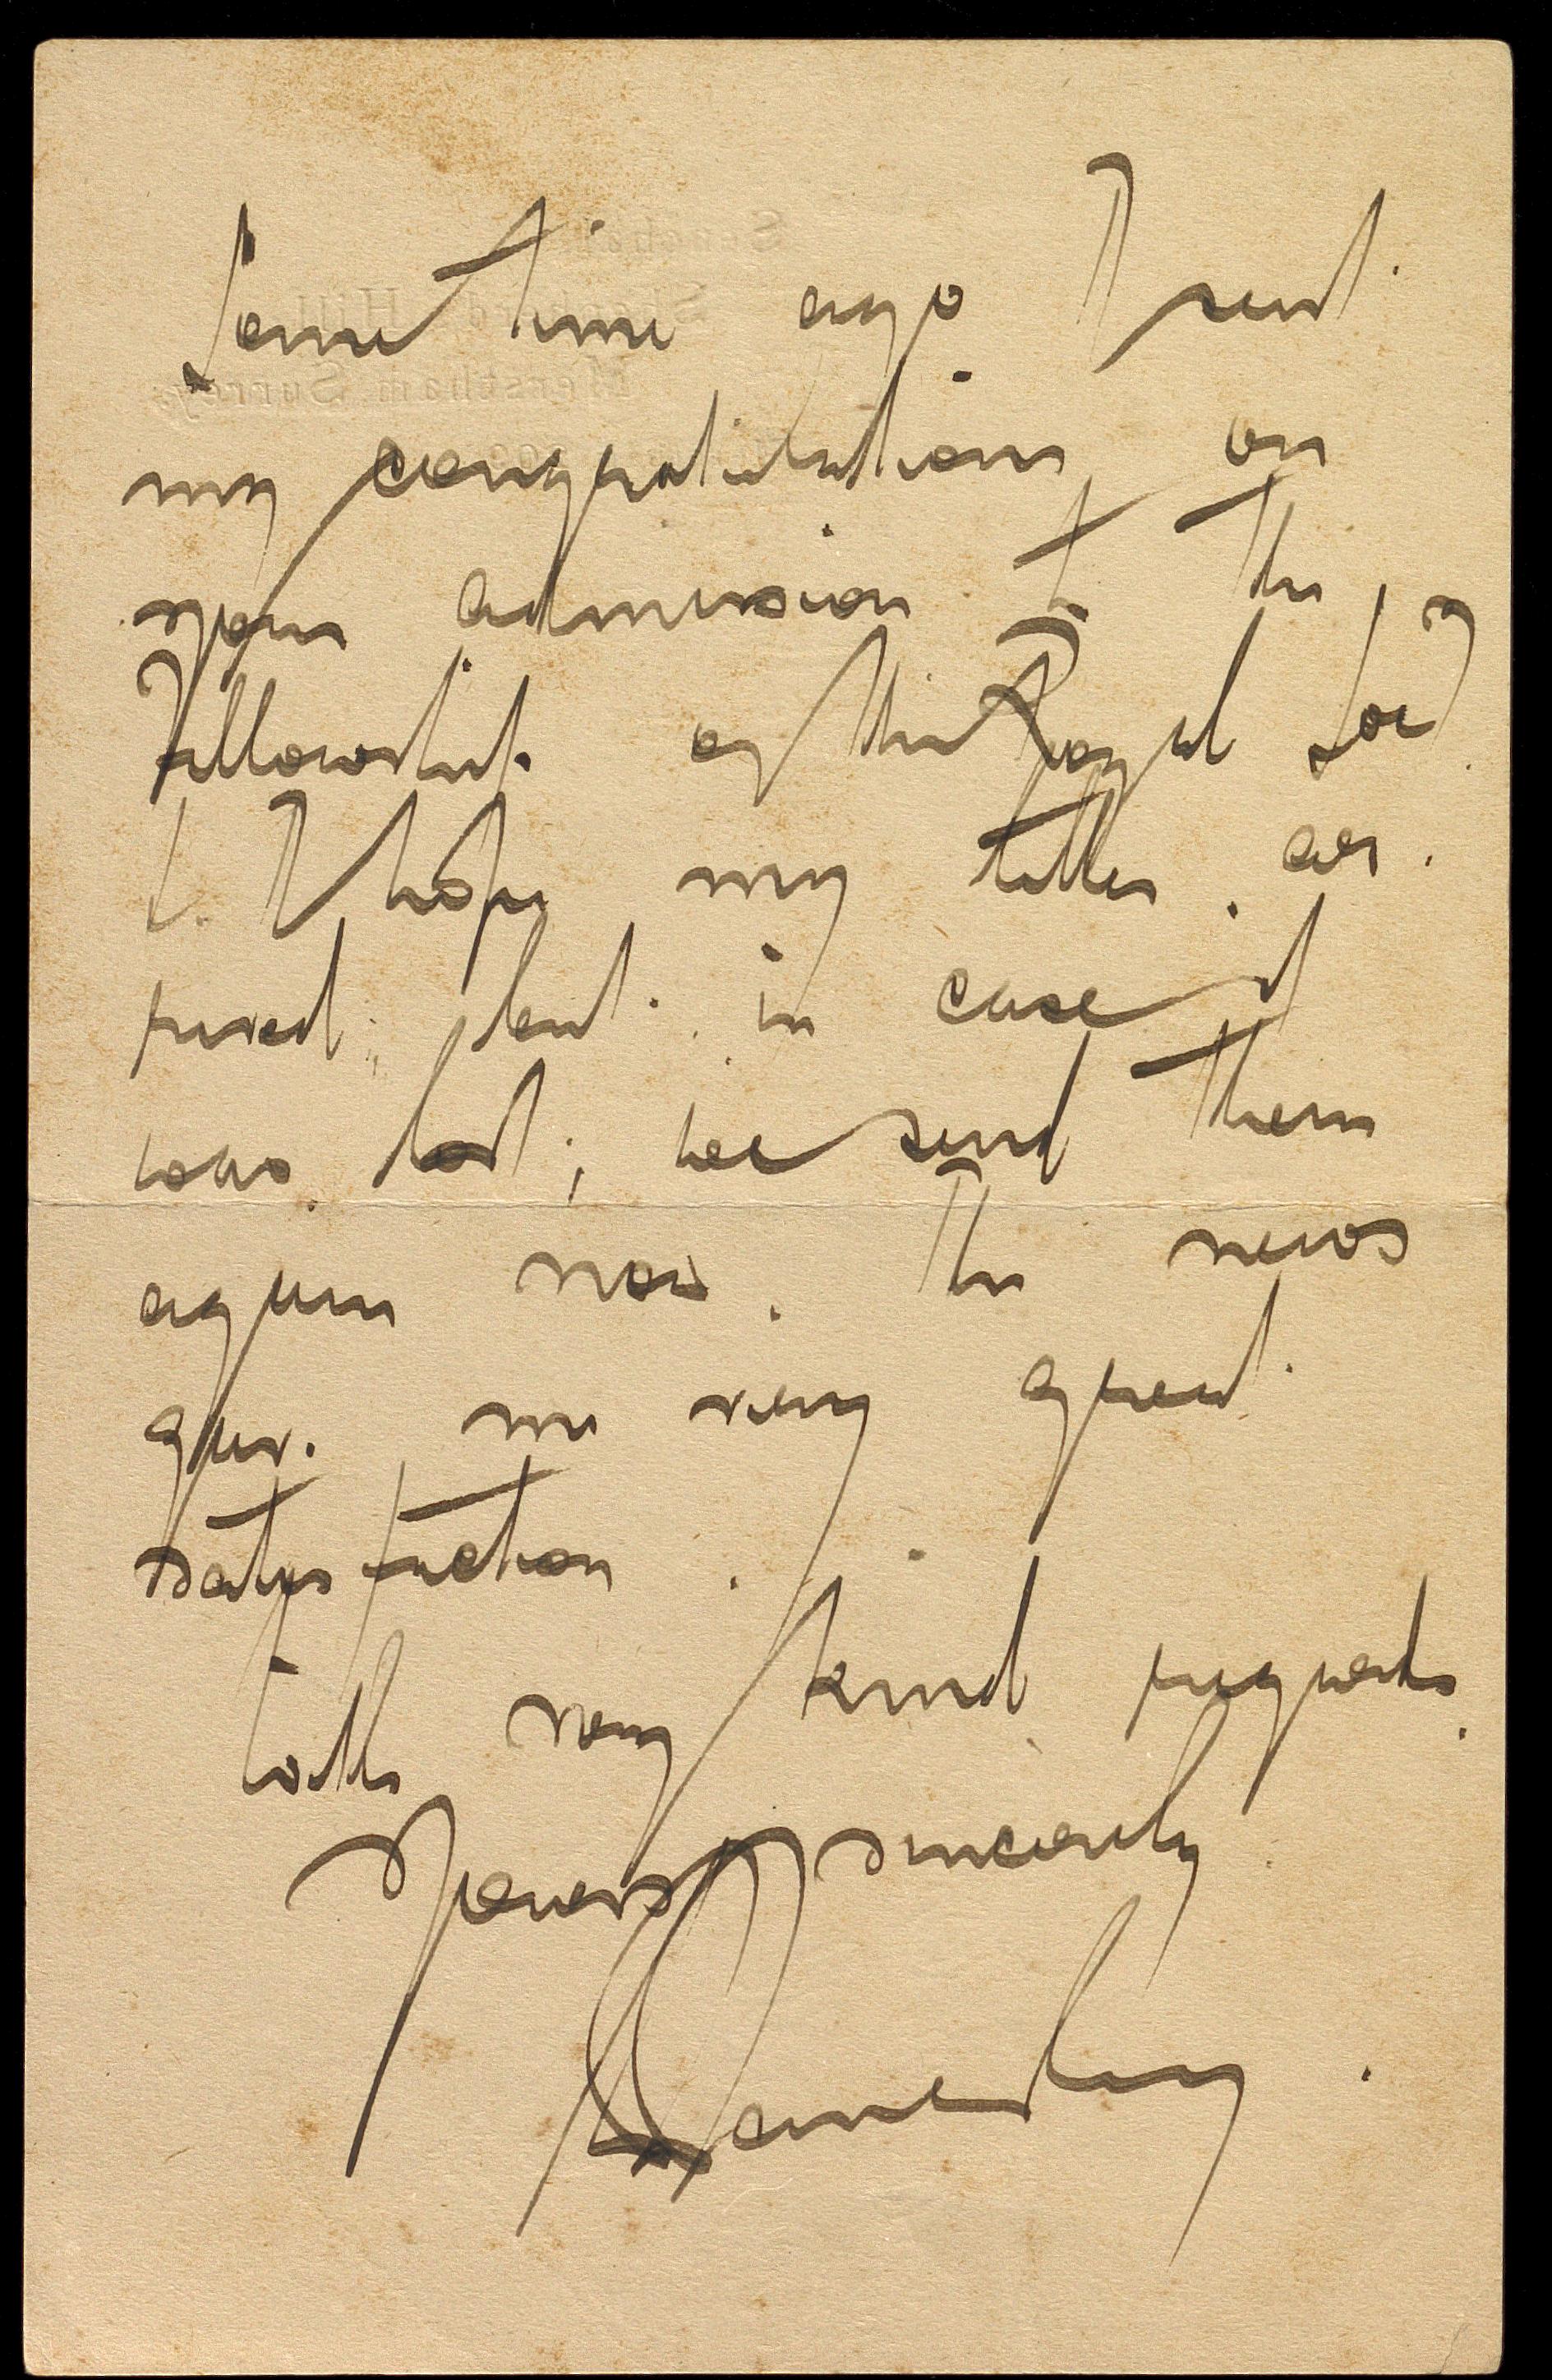 Some time ago I sent
my congratulations on
your admission to the
Fellowship of the Royal Socy
I hope my letter ar
rived, but in case it
was lost, we send them
again now. The news
gives me very great
satisfaction.
With very kind regards
Yours sincerely